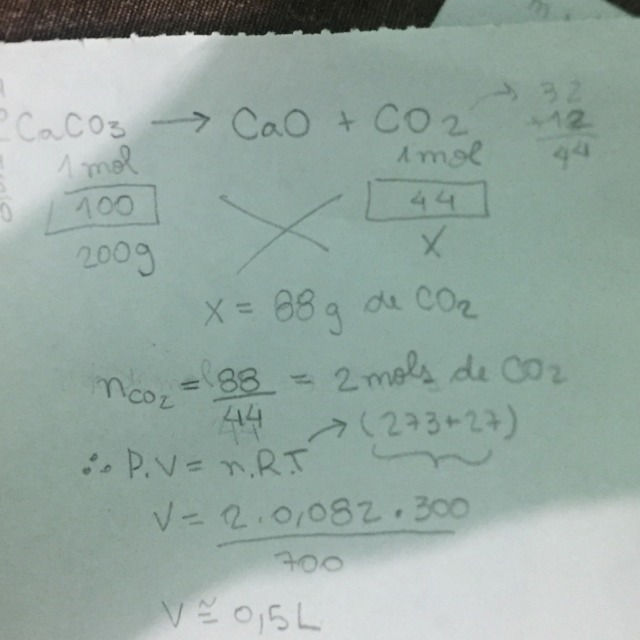 CaCO3 → CaO + CO2 → 32
+12
44
1mol 1mol
100 44
200g X
X = 88g de CO2
nCO2 = 88/44 = 2 mols de CO2
∴ P.V = n.R.T → (273+27)
V = 2.0,082.300
700
V ≅ 0,5L